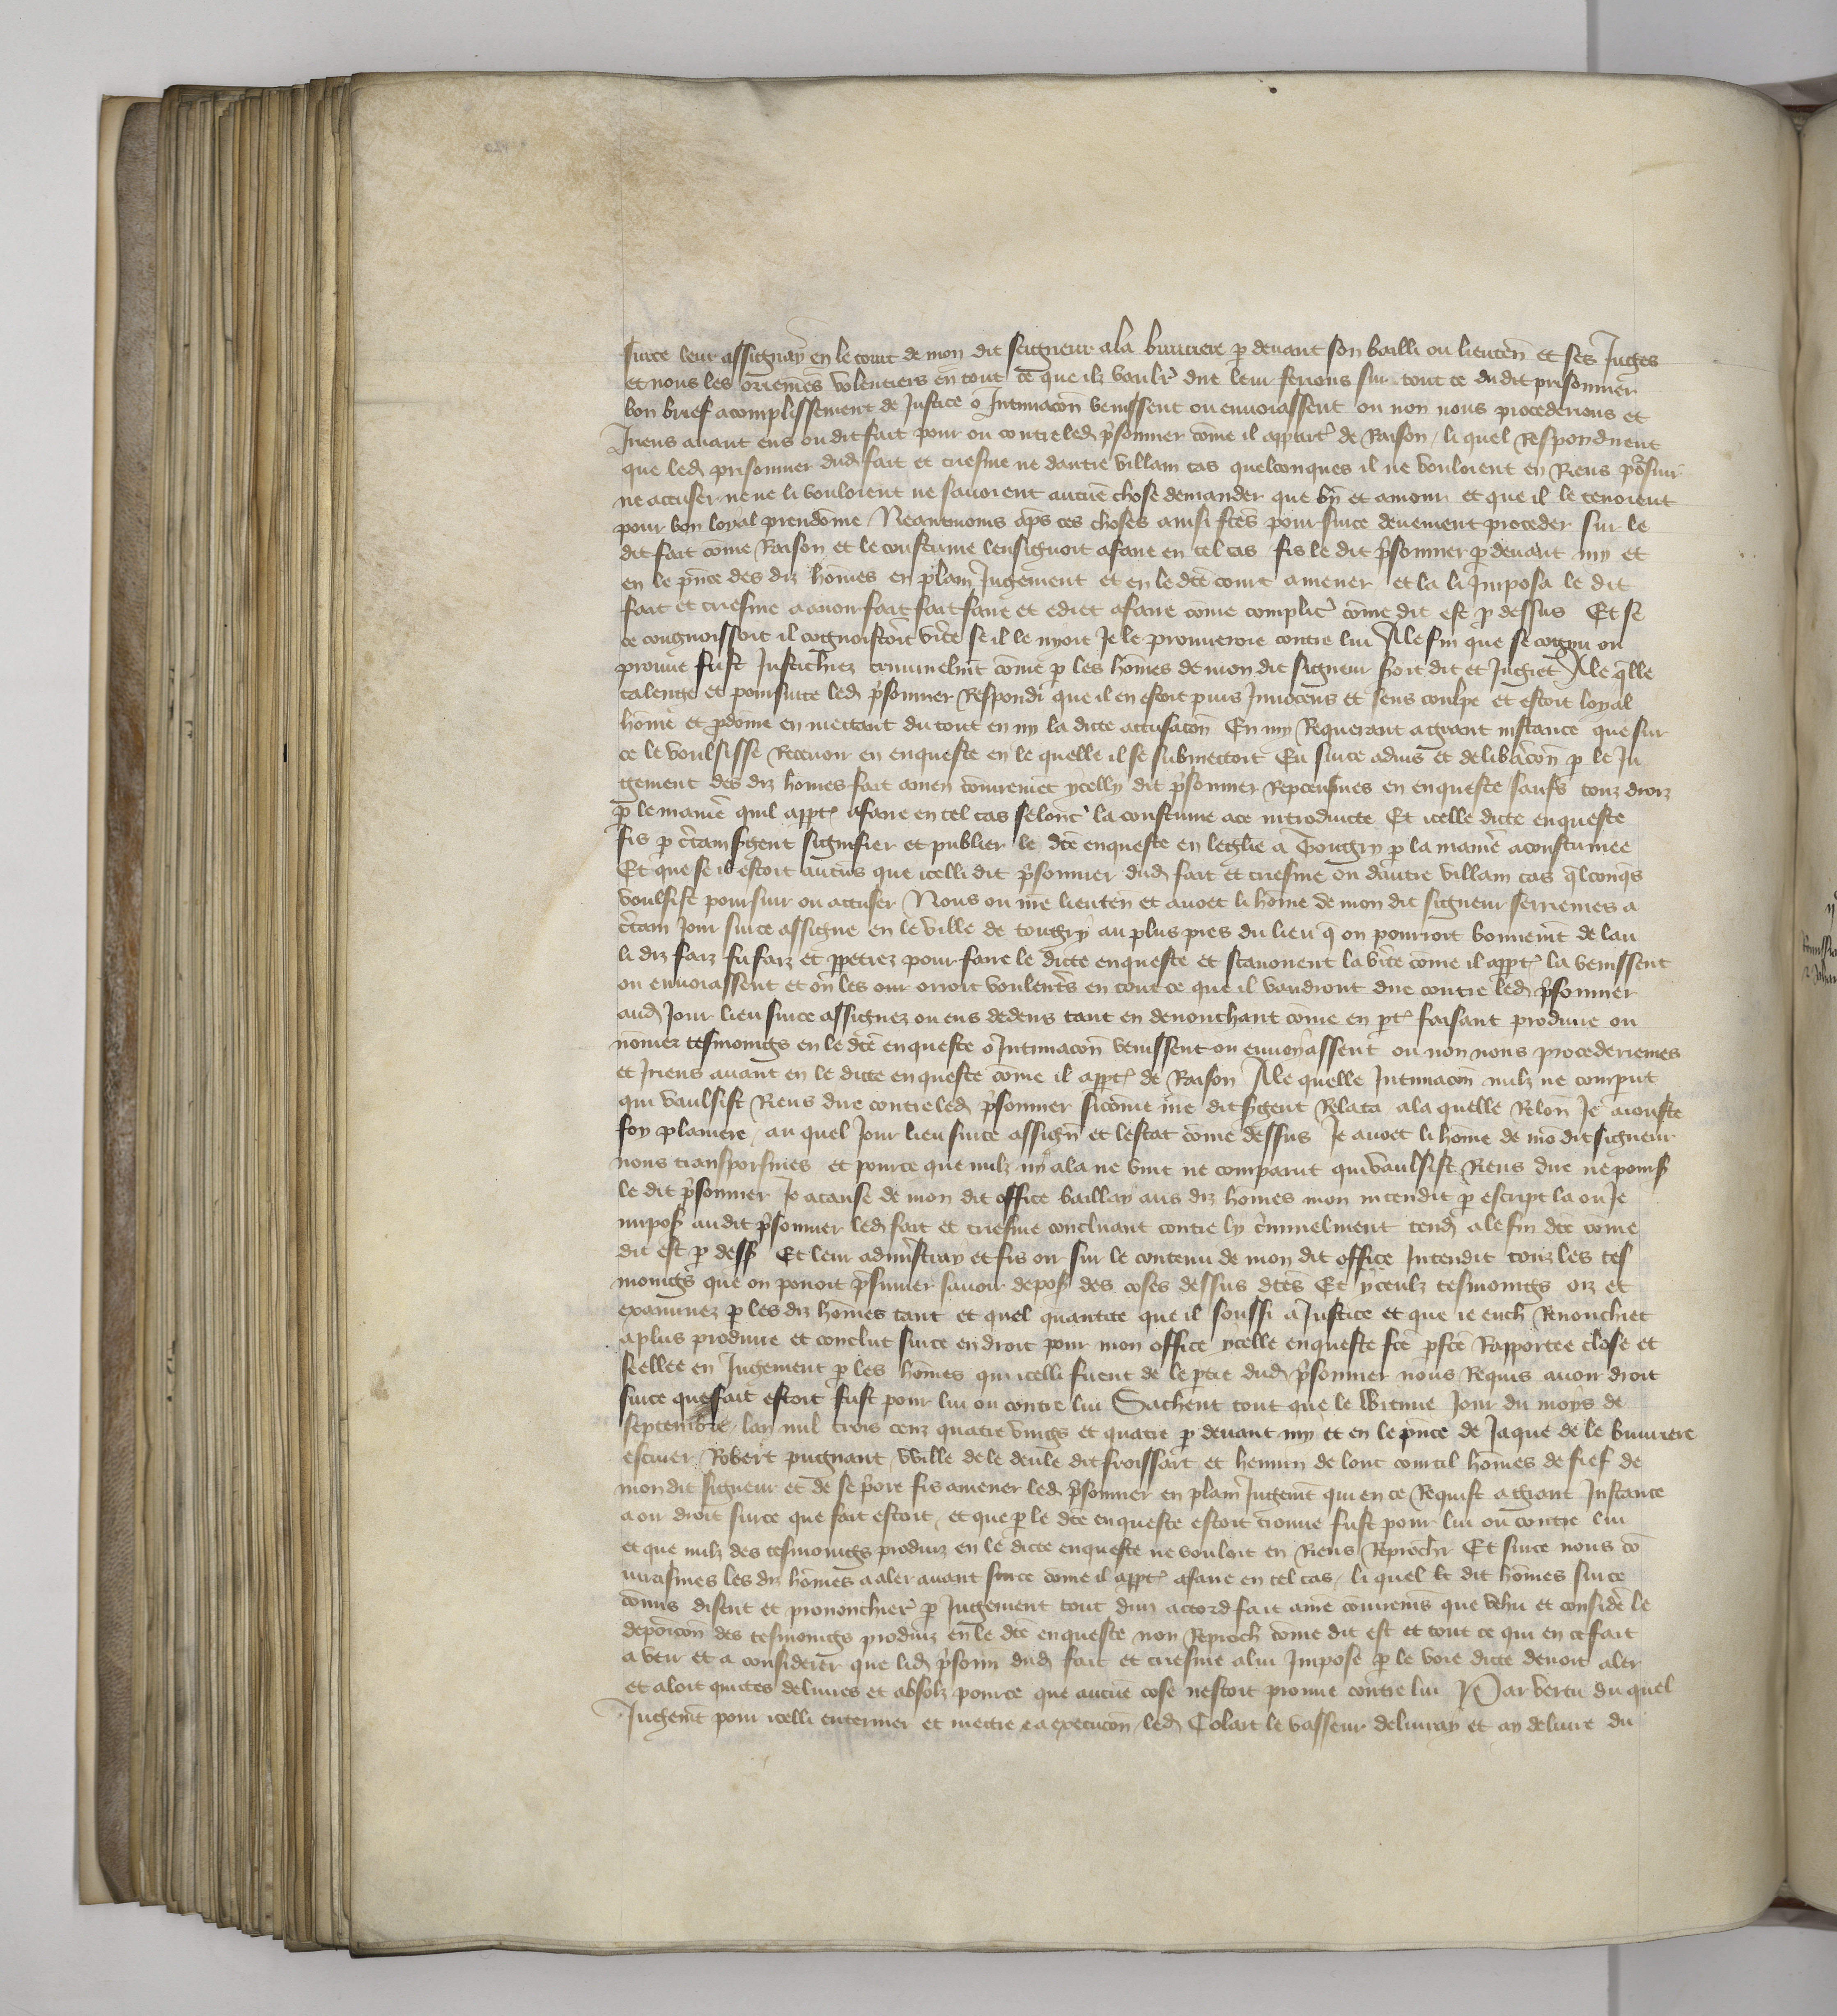 surce leur assignay en le court de mon dit seigneur ala buuriere p devant son bailli ou lieuten et ses Juges
et nous les orriemes volentiers en tout ce que ilz voulr dire leur ferions sur tout ce du dit prisonnier
bon brief acomplissement de Justice o Intimacon venissent ou envoiassent ou non nous procederions et
Iriens avant ens ou dit fait pour ou contre led prisonnier come il appart de Raison / li quel Respondirent
que led prisonnier dud fait et criesme ne dautre villain cas quelconques il ne vouloient en Riens porsuir
ne accuser ne ne li vouloient ne savoient aucue chose demander que bn et amour et que il le tenoient
pour bon loyal preudome / Neantmoins aps ces choses ainsi ftes pour surce deuement proceder sur le
dit fait come Raison et le coustume lensignoit afaire en tel cas fis le dit prsonnier p devant my et
en le pnce des diz homes en plain Jugement et en le dte court amener et la li Imposa le dit
fait et criesme a avoir fait fait faire et edict afaire come complit come dit est p dessus Et se
ce congnoissoit il cognoistoit vite se il le nyoit Je le prouveroie contre lui Ale fin que se cognu ou
prouve fust Justichiez criminelmt come p les homes de mon dit signeur soit dit et Jugiet Ale qlle
calenge et poursuite led prsonnier Respondi que il en estoit purs Innocens et sens coulpe et estoit loyal
home et pdome en mettant du tout en ny la dicte accusacon En my Requerant a grant instance que sur
ce le voulsisse Recevoir en enqueste en le quelle il se submettoit Eu surce advis et delibacon p le Ju
gement des diz homes fait amen conurement ycelly dit prsonnier Repceusmes en enqueste saufs touz droiz
p le manie quil appt afaire en tel cas selonc la coustume ace introduicte Et icelle dicte enqueste
fis p ctain sgent signifier et publier le dte enqueste en leglise a Tourgny p la manie acoustumee
Et que se il estoit aucus que icelli dit prsonnier dud fait et criesme ou dautre villain cas qlconqs
voulsise poursuir ou accuser / Nous ou me lieuten et avoec li home de mon dit signeur serriemes a
ctain Jour surce assigne en le ville de tourgny au plus pres du lieu q on pourroit bonnemt de lau
li diz faiz fu faiz et ppetrez pour faire le dicte enqueste et scavoirent la vite come il appt la venissent
ou envoiassent et on les oir orroit voulents en tout ce que il vaudront dire contre led prsonnier
aud Jour lieu surce assignez ou ens dedens tant en denonchant come en pt faisant produire ou
nomer tesmoings en le dte enqueste o Intimacon venissent ou envoyassent ou non nous procederiemes
et Iriens avant en le dicte enqueste come il appt de Raison Ale quelle Intimacon nulz ne comput
qui vaulsist Riens dire contre led prsonnier sicome me dit sgent Relata ala quelle Relon Je aiouste
foy planiere / au quel Jour lieu surce assign et lestat come dessus Je avoec li home de mo dit signeur
nous transporsmes et pource que nulz ny ala ne vint ne comparut qui vaulsist Riens dire ne pours
le dit prsonnier Je acause de mon dit office baillay aus diz homes mon intendit p escript la ou Je
impos au dit prsonnier led fait et criesme concluant contre ly criminelment tend ale fin dte come
dit est p dess Et leur administray et fis oir sur le contenu de mon dit office Intendit touz les tes
moings que on pouoit prsumer savoir depos des coses dessus dtes Et yceulz tesmoings oiz et
examinez p les diz homes tant et quel quantite que il souffi a Justice et que ie euch Renonchiet
aplus produire et conclut surce en droit pour mon office ycelle enqueste fte pfte Rapportee close et
seellee en Jugement p les homes qui icelli firent de le ptie dud prsonnier nous Requis avoir droit
surce que fait estoit fust pour lui ou contre lui Sachent tout que le witime Jour du moys de
septembre / lan mil trois cenz quatre vings et quatre p devant my et en le pnce de Jaque de le buuriere
escuier / Robert pugnant / Wille de le deule dit froissart et hennin de lonc courtil homes de fief de
mon dit signeur et de se pore fis amener led prsonnier en plain Jugemt qui en ce Requist a grant Instance
a oir droit surce que fait estoit / et que p le dte enqueste estoit trouve fust pour lui ou contre lui
et que nulz des tesmoings produiz en le dicte enqueste ne vouloit en Riens Reprochr Et surce nous co
niurasmes les diz homes a aler avant surce come il appt afaire en tel cas / li quel le dit homes surce
coiurs disent et prononchier p Jugement tout dun accord fait ame conuremt que vehu et considere le
deposicon des tesmoings produiz en le dte enqueste non Reproch come dit est et tout ce qui en ce fait
a veir et a considerer que lid prsonn dud fait et criesme alui Impose p le voie dicte devoit aler
et aloit quictes delivres et absolz pource que aucue cose nestoit prouve contre lui Par vertu du quel
Jugemt pour icelli enteriner et mettre e a execucon / led Colart le vasseur delivray et ay delivre du